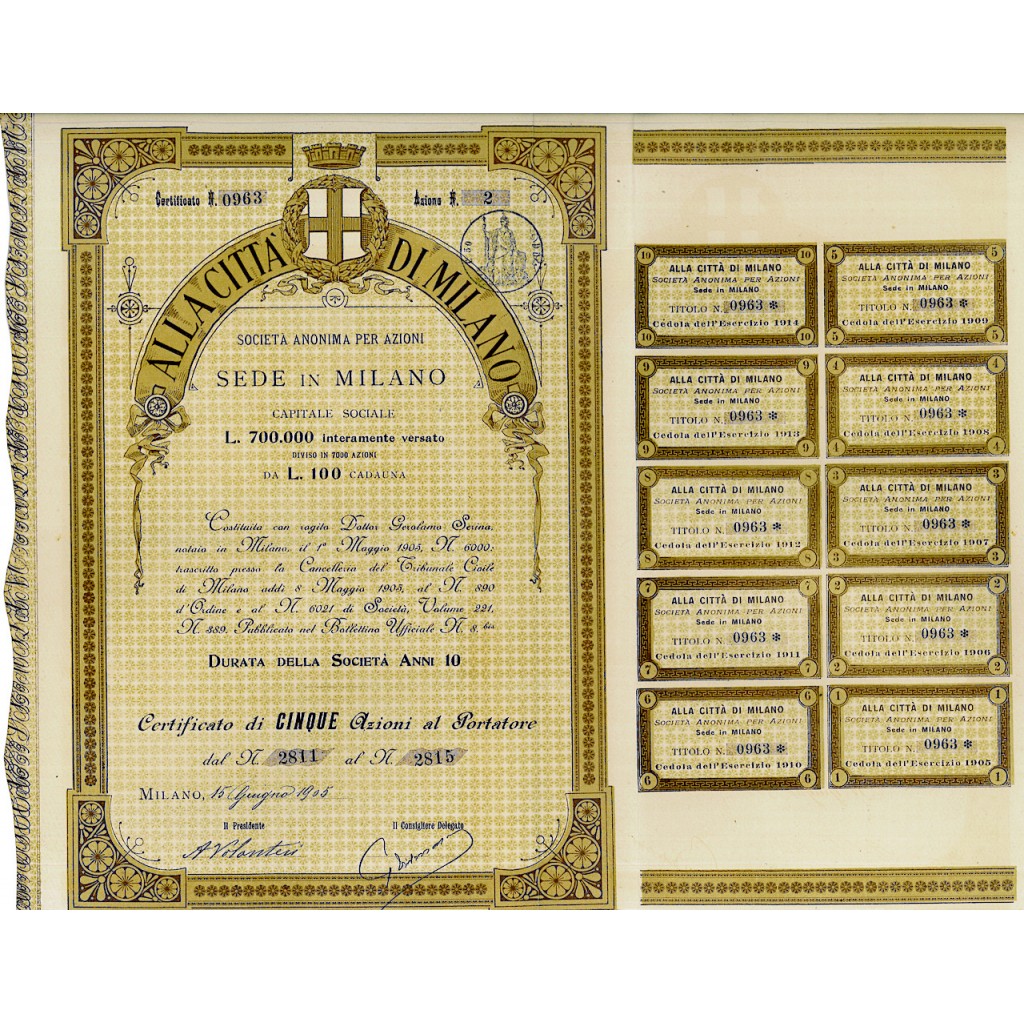 Certificato N. 0963
Azione N. 2
ALLA CITTÀ DI MILANO
SOCIETÀ ANONIMA PER AZIONI
SEDE IN MILANO
CAPITALE SOCIALE
L. 700.000 interamente versato
DIVISO IN 7000 AZIONI
DA L. 100 CADAUNA
Costituita con rogito Dottor Gerolamo Serina,
notaio in Milano, il 1º Maggio 1905, N. 6000;
trascritto presso la Cancelleria del Tribunale Civile
di Milano addì 8 Maggio 1905, al N. 890
d'Ordine e al N. 6021 di Società, Volume 221,
N. 389. Pubblicato nel Bollettino Ufficiale N. 8. bis
DURATA DELLA SOCIETÀ ANNI 10
Certificato di CINQUE Azioni al Portatore
dal N. 2811 al N. 2815
MILANO, 15 Giugno 1905
Il Presidente
Il Consigliere Delegato
A Volonteri
10 10
ALLA CITTÀ DI MILANO
SOCIETÀ ANONIMA PER AZIONI
Sede in MILANO
TITOLO N. 0963 *
Cedola dell'Esercizio 1914
10 10
5 5
ALLA CITTÀ DI MILANO
SOCIETÀ ANONIMA PER AZIONI
Sede in MILANO
TITOLO N. 0963 *
Cedola dell'Esercizio 1909
5 5
9 9
ALLA CITTÀ DI MILANO
SOCIETÀ ANONIMA PER AZIONI
Sede in MILANO
TITOLO N. 0963 *
Cedola dell'Esercizio 1913
9 9
4 4
ALLA CITTÀ DI MILANO
SOCIETÀ ANONIMA PER AZIONI
Sede in MILANO
TITOLO N. 0963 *
Cedola dell'Esercizio 1908
4 4
8 8
ALLA CITTÀ DI MILANO
SOCIETÀ ANONIMA PER AZIONI
Sede in MILANO
TITOLO N. 0963 *
Cedola dell'Esercizio 1912
8 8
3 3
ALLA CITTÀ DI MILANO
SOCIETÀ ANONIMA PER AZIONI
Sede in MILANO
TITOLO N. 0963 *
Cedola dell'Esercizio 1907
3 3
7 7
ALLA CITTÀ DI MILANO
SOCIETÀ ANONIMA PER AZIONI
Sede in MILANO
TITOLO N. 0963 *
Cedola dell'Esercizio 1911
7 7
2 2
ALLA CITTÀ DI MILANO
SOCIETÀ ANONIMA PER AZIONI
Sede in MILANO
TITOLO N. 0963 *
Cedola dell'Esercizio 1906
2 2
6 6
ALLA CITTÀ DI MILANO
SOCIETÀ ANONIMA PER AZIONI
Sede in MILANO
TITOLO N. 0963 *
Cedola dell'Esercizio 1910
6 6
1 1
ALLA CITTÀ DI MILANO
SOCIETÀ ANONIMA PER AZIONI
Sede in MILANO
TITOLO N. 0963 *
Cedola dell'Esercizio 1905
1 1